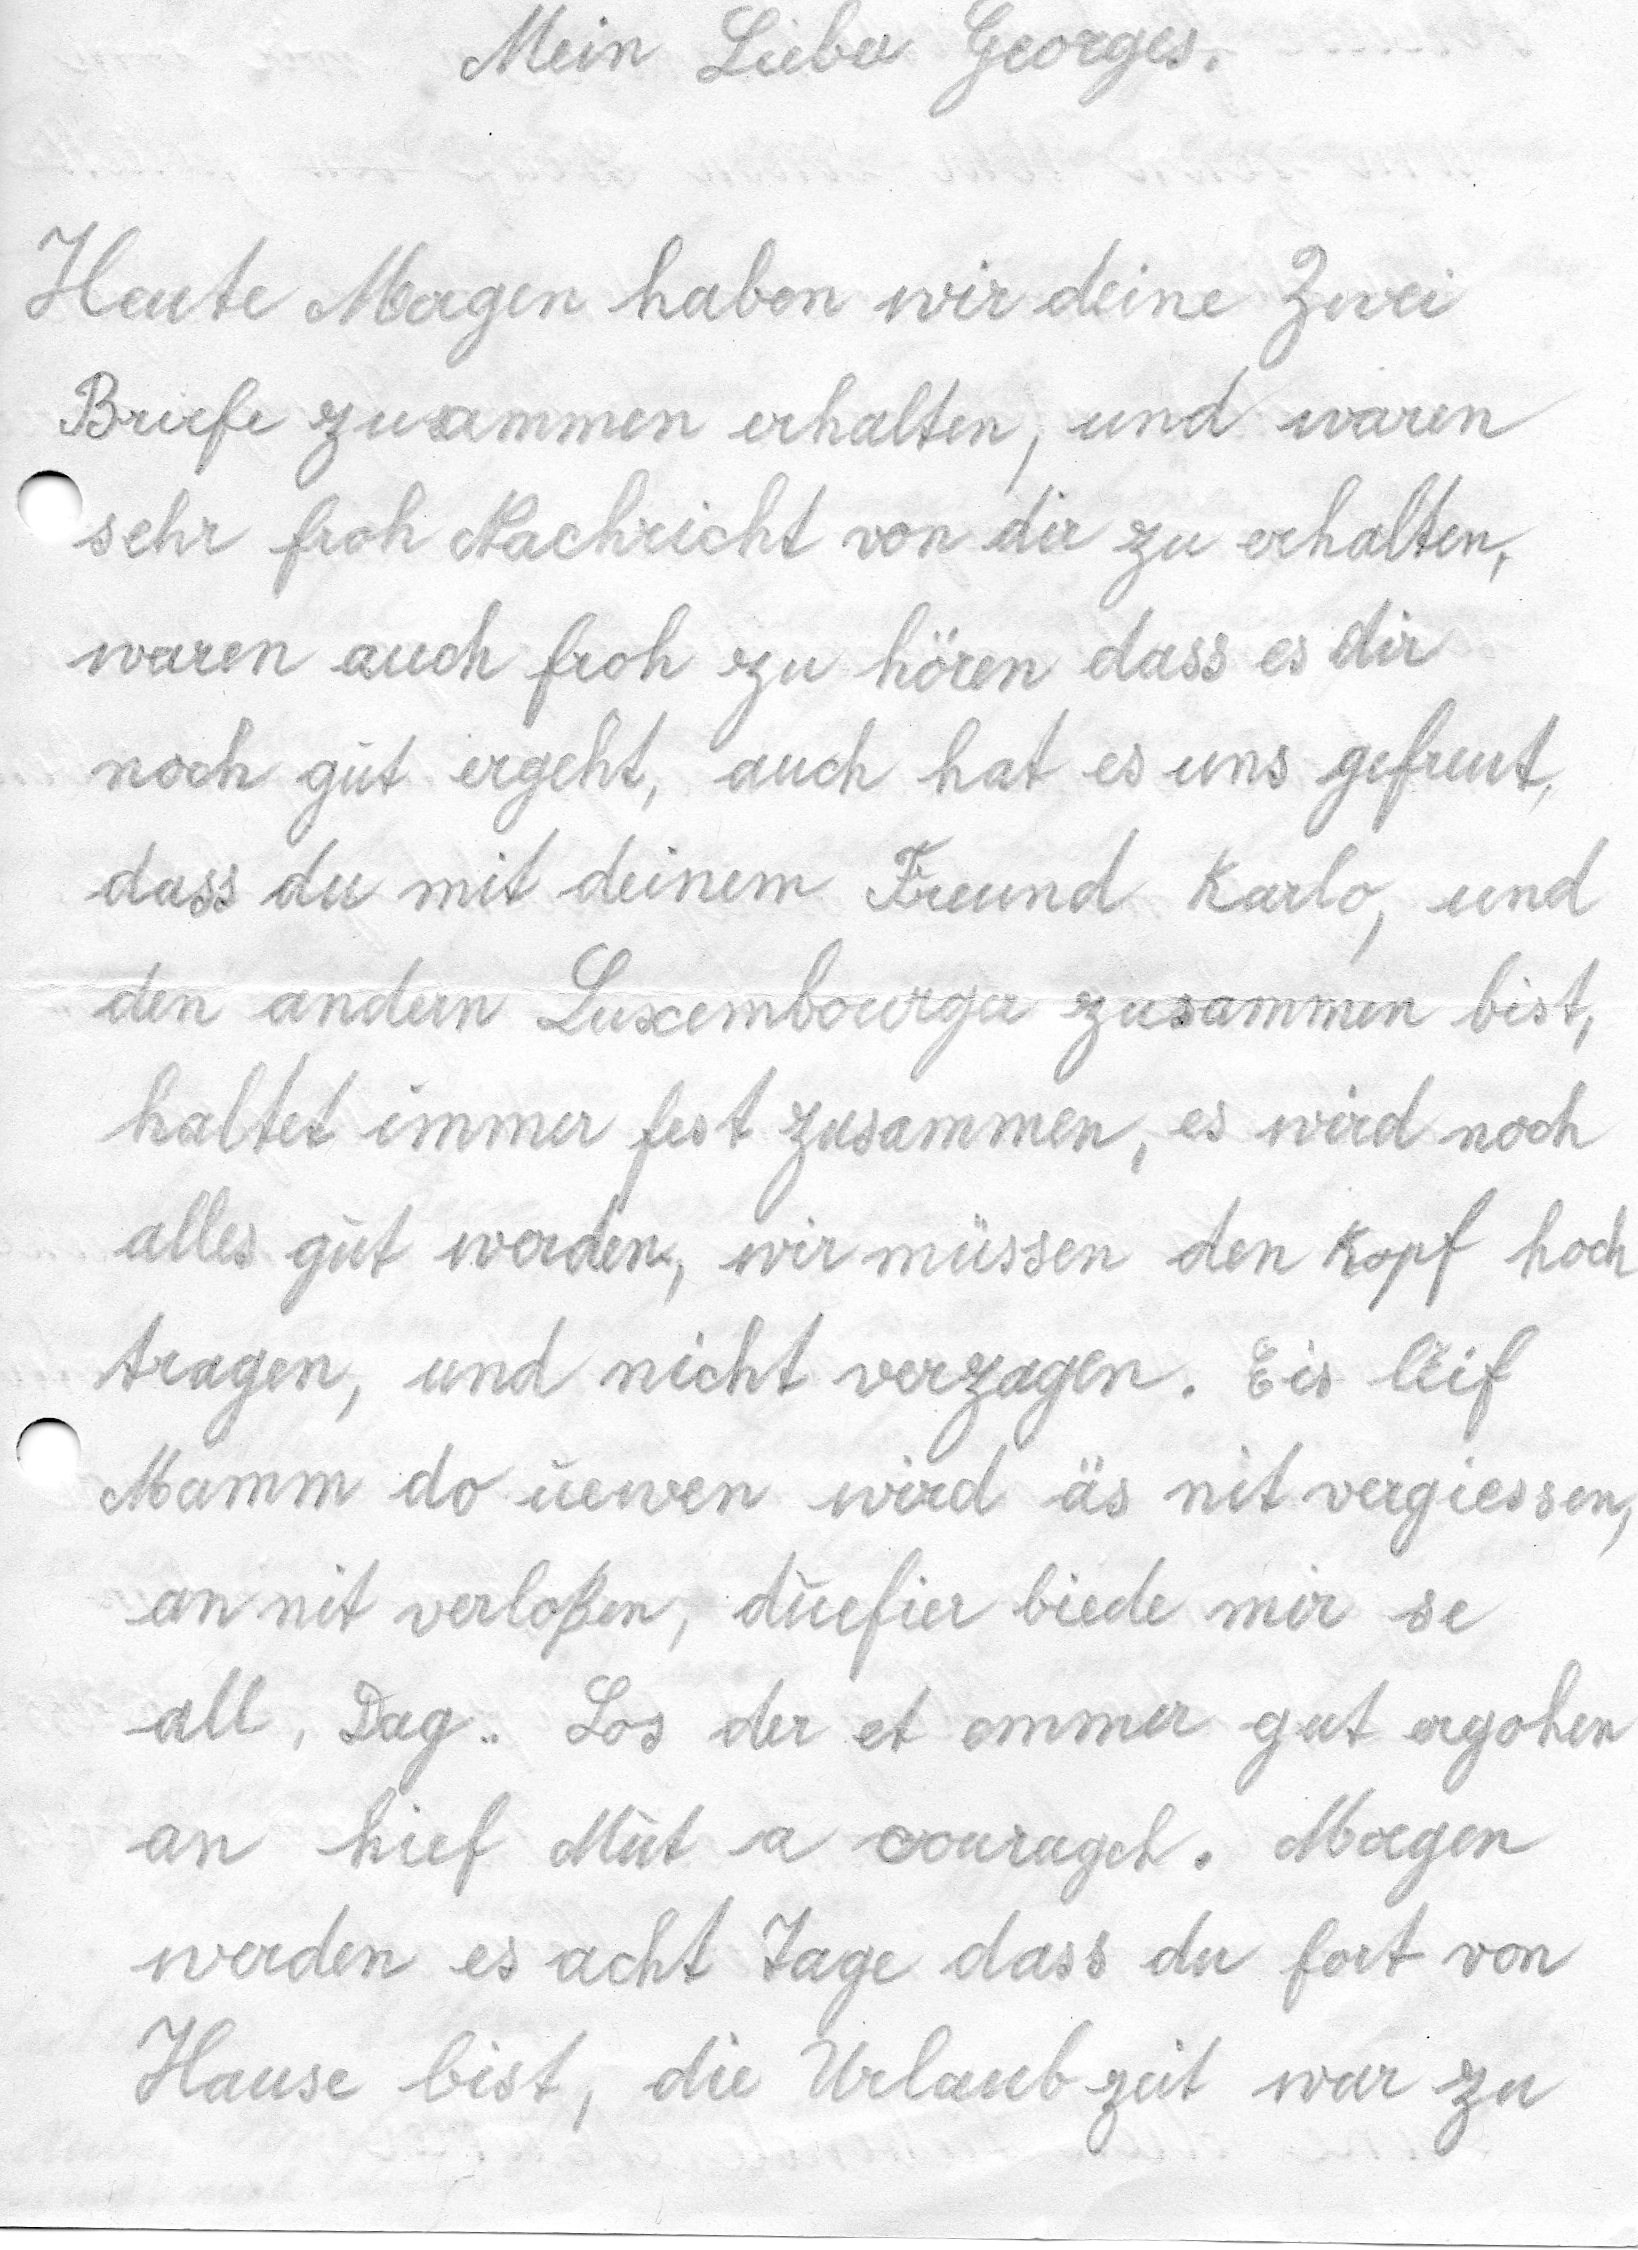 Mein Lieber Georges.
Heute Morgen haben wir deine Zwei
Briefe zusammen erhalten, und waren
sehr froh Nachricht von dir zu erhalten,
waren auch froh zu hören dass es dir
noch gŭt ergeht, auch hat es uns gefreut,
dass du mit deinem Freund Karlo, und
den andern Luxembourger zusammen bist,
haltet immer fest zusammen, es wird noch
alles gŭt werden, wir müssen den Kopf hoch
tragen, und nicht verzagen. Eis lëif
Mamm do ŭewen wird äs nit vergiessen,
an nit verloßen, dŭefier biede mir se
all, Dag.. Los der et ommer gut ergohen
an hief Mŭt a courageh. Morgen
werden es acht Tage dass du fort von
Hause bist, die Urlaubzeit war zu